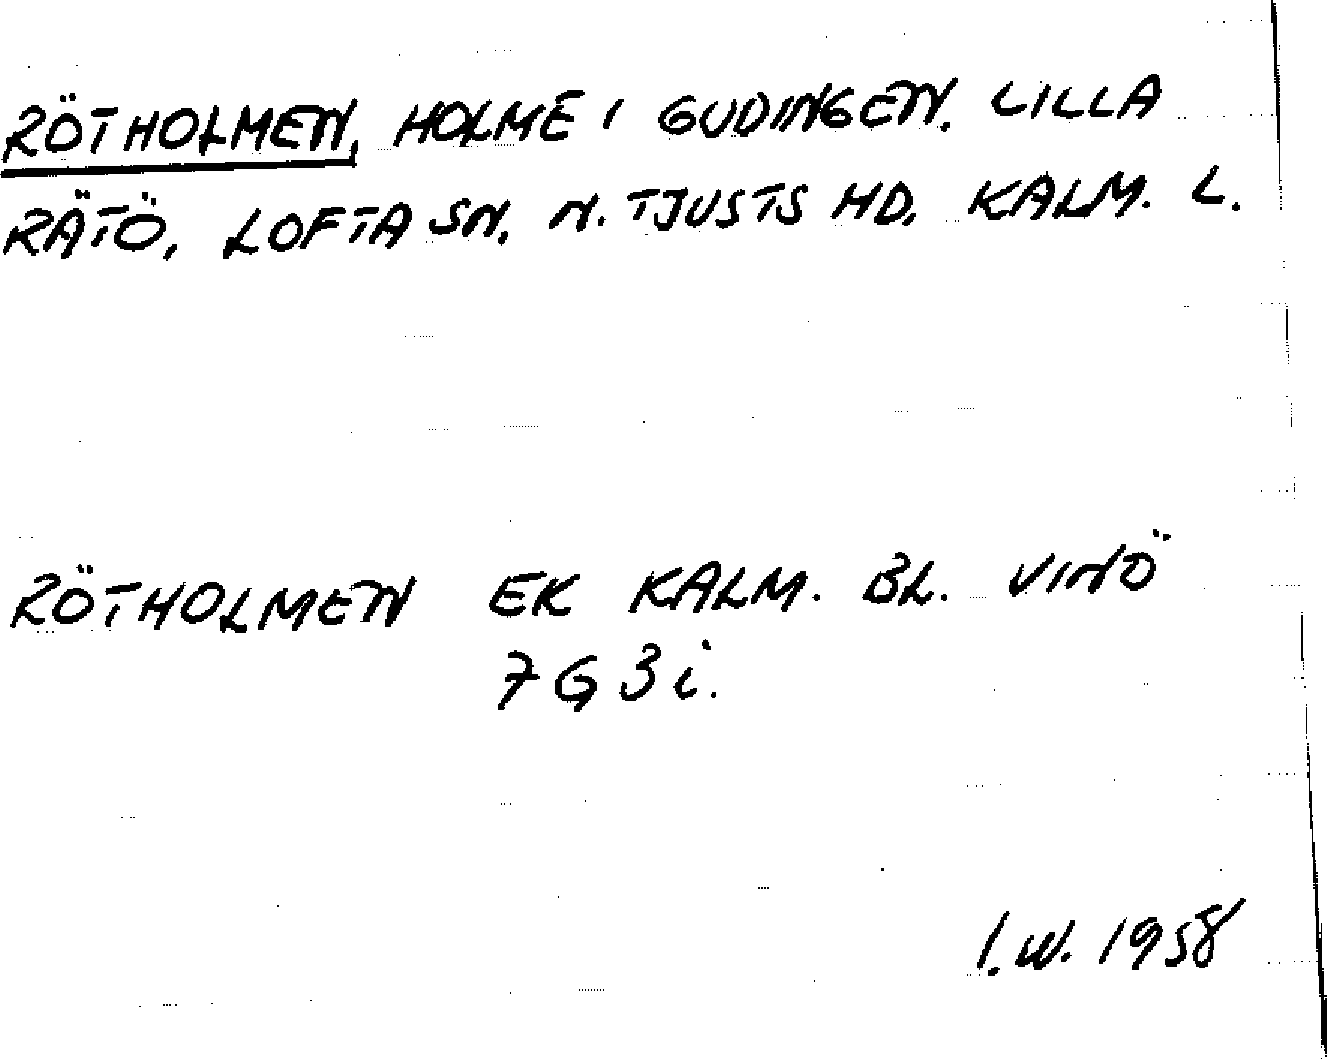 RÖTHOLMEN, HOLME I GUDINGEN. LILLA
RÄTÖ, LOFTA SN. N. TJUSTS HD. KALM. L.
RÖTHOLMEN EK KALM. BL. VINÖ
7G3i.
I.W. 1958